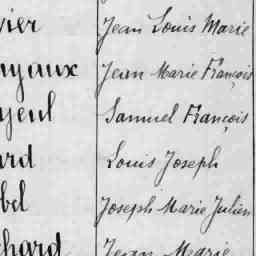 vier Jean Louis Marie
nyaux Jean Marie François
yeul Samuel François
ard Louis Joseph
bel Joseph Marie Julien
chard Jean Marie